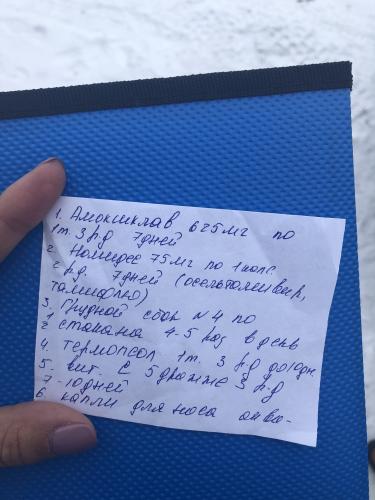 1. Амоксиклав 625мг по
1т. 3 р.д 7дней
2 Номидес 75мг по 1 капс.
2 р.д. 7дней (осельтамивир,
тамифлю)
3. Грудной сбор N4 по
1/2 стакана 4-5 раз в день
4. термопсол 1т. 3 р.д до10дн.
5. вит. С 5 драже 3 р.д
7-10дней
6 капли для носа аква-